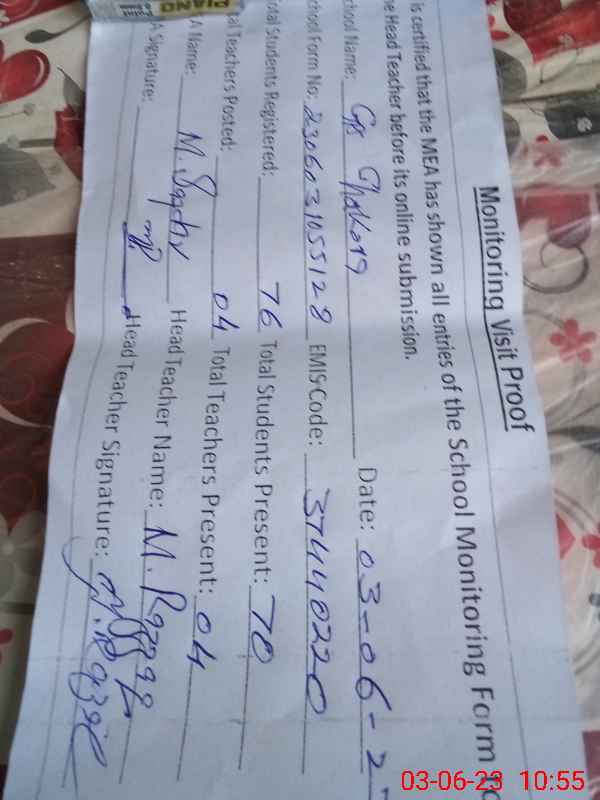 PIANO
Monitoring Visit Proof
is certified that the MEA has shown all entries of the School Monitoring Form to
he Head Teacher before its online submission.
chool Name: GPS Date: 03-06-2
chool Form No: 2306031055128 EMIS Code: 37440220
otal Students Registered: 76 Total Students Present: 70
al Teachers Posted: 04 Total Teachers Present: 04
A Name: M. Head Teacher Name: M. Razzaq
A Signature: Head Teacher Signature: M. Razzaq
03-06-23 10:55